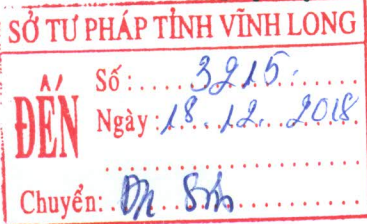 SỞ TƯ PHÁP TỈNH VĨNH LONG
ĐẾN
Số: 3215
Ngày: 18.12.2018
Chuyển: